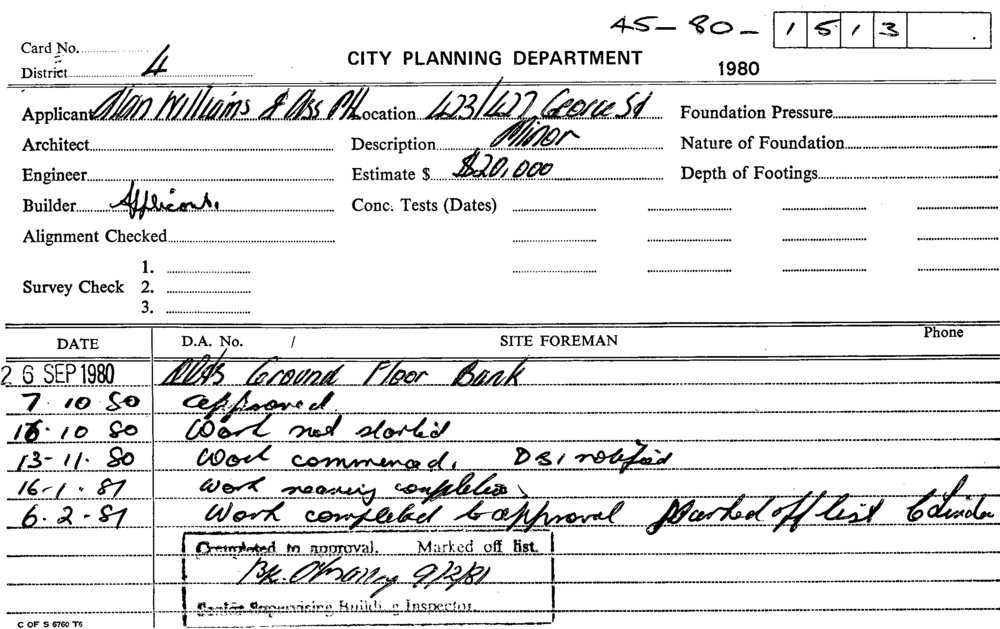 45-80- 1513
Card No.
District 4
CITY PLANNING DEPARTMENT
1980
Applicant Alan Williams & Ass P/L Location 423/427 George St Foundation Pressure
Architect Description Minor Nature of Foundation
Engineer Estimate $ $20,000 Depth of Footings
Builder Applicant. Conc. Tests (Dates)
Alignment Checked
1.
Survey Check 2.
3.
DATE D.A. No. / SITE FOREMAN Phone
26 SEP 1980 Ground Floor Bank
7.10 80 approved
16.10 80 Work not started
13-11.80 Work commenced. DSI notified
16-1-81 Work nearing completion
6.2-81 Work completed to approval Marked off list
Completed to approval. Marked off list.
9/2/81
Senior Supervising Building Inspector.
C OF S 6760 T6